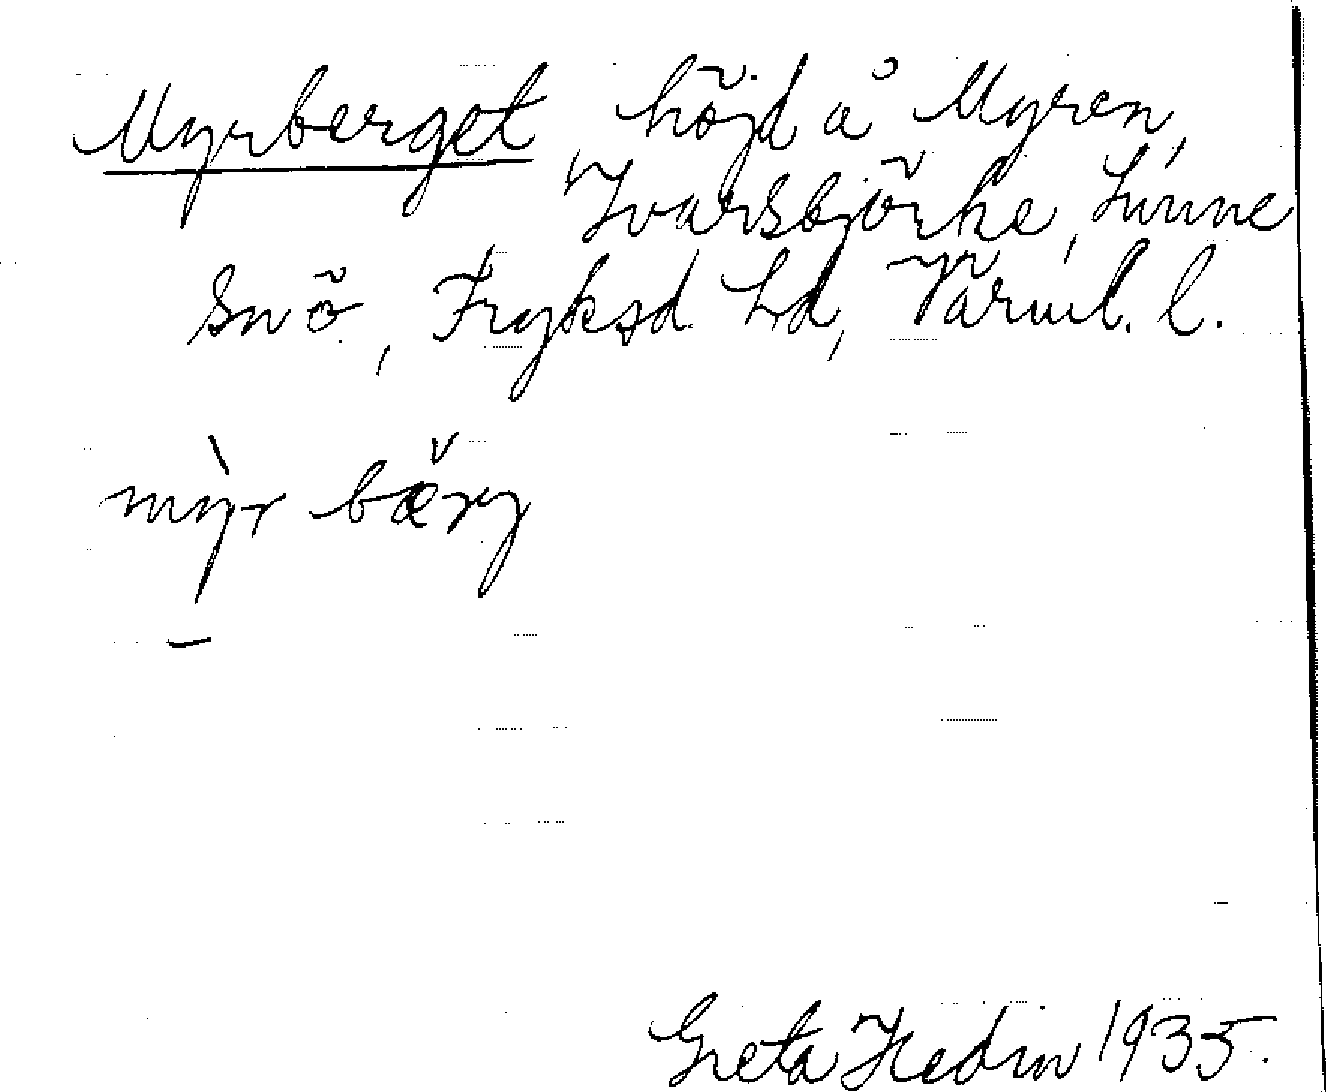 Myrberget höjd å Myren,
Ivarsbjörke, Sunne
Snö, Fryksd hd, Värml. l.
mỳr bæ̌rj
Greta Hedin 1935.